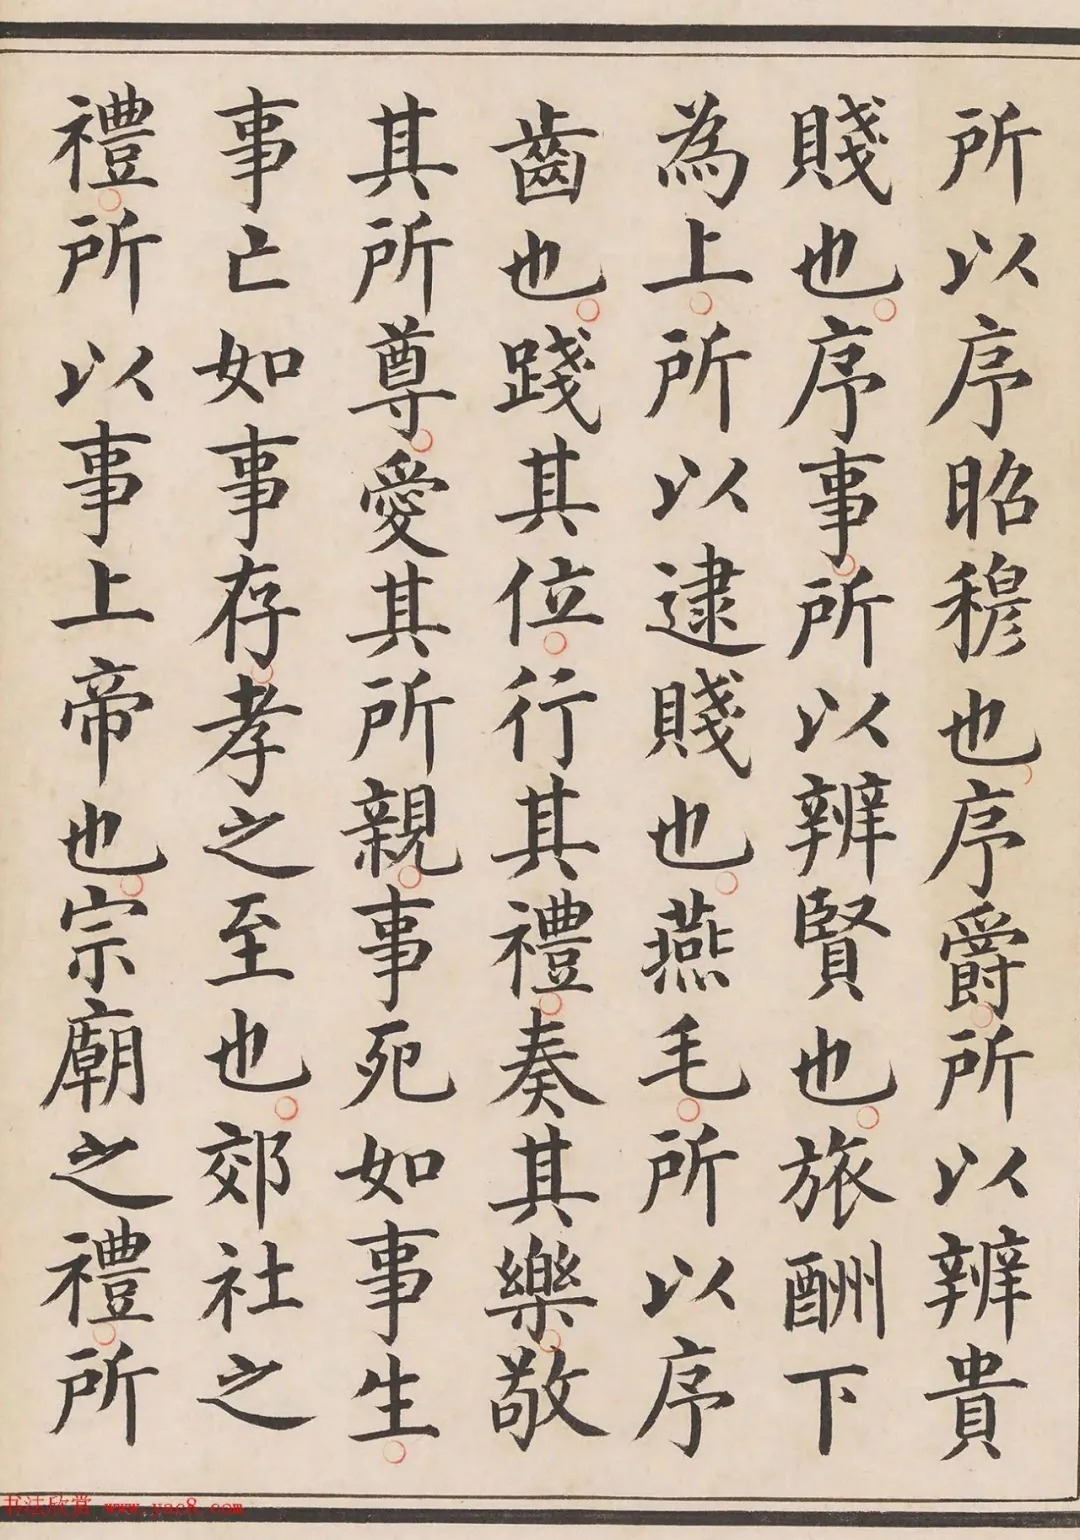 所以序昭穆也序爵所以辨貴
賤也序事所以辨賢也旅酬下
為上所以逮賤也燕毛所以序
齒也踐其位行其禮奏其樂敬
其所尊愛其所親事死如事生
事亡如事存孝之至也郊社之
禮所以事上帝也宗廟之禮所
书法欣赏 www.yac8.com